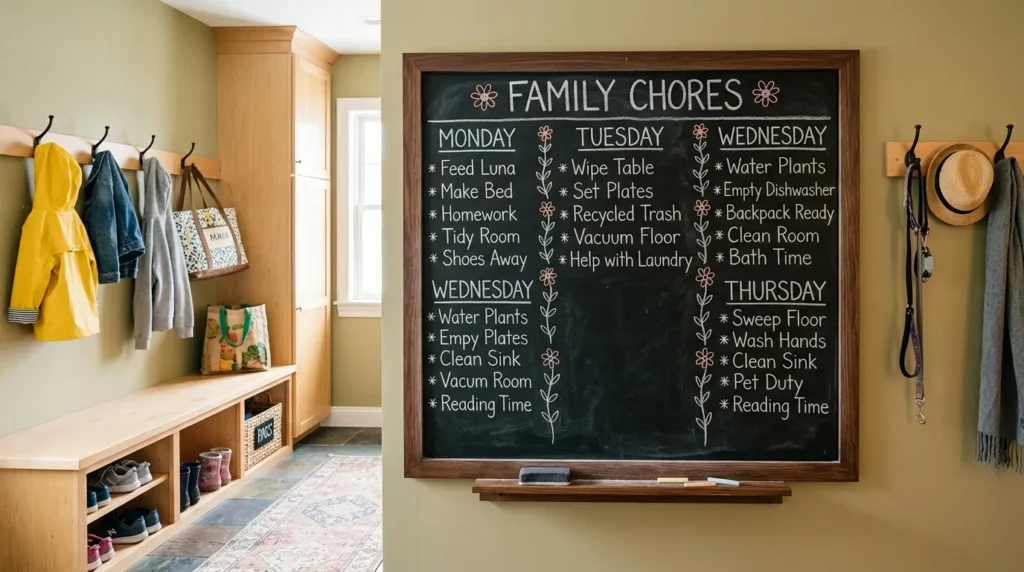 FAMILY CHORES
MONDAY
* Feed Luna
* Make Bed
* Homework
* Tidy Room
* Shoes Away
TUESDAY
* Wipe Table
* Set Plates
* Recycled Trash
* Vacuum Floor
* Help with Laundry
WEDNESDAY
* Water Plants
* Empty Dishwasher
* Backpack Ready
* Clean Room
* Bath Time
WEDNESDAY
* Water Plants
* Empy Plates
* Clean Sink
* Vacum Room
* Reading Time
THURSDAY
* Sweep Floor
* Wash Hands
* Clean Sink
* Pet Duty
* Reading Time